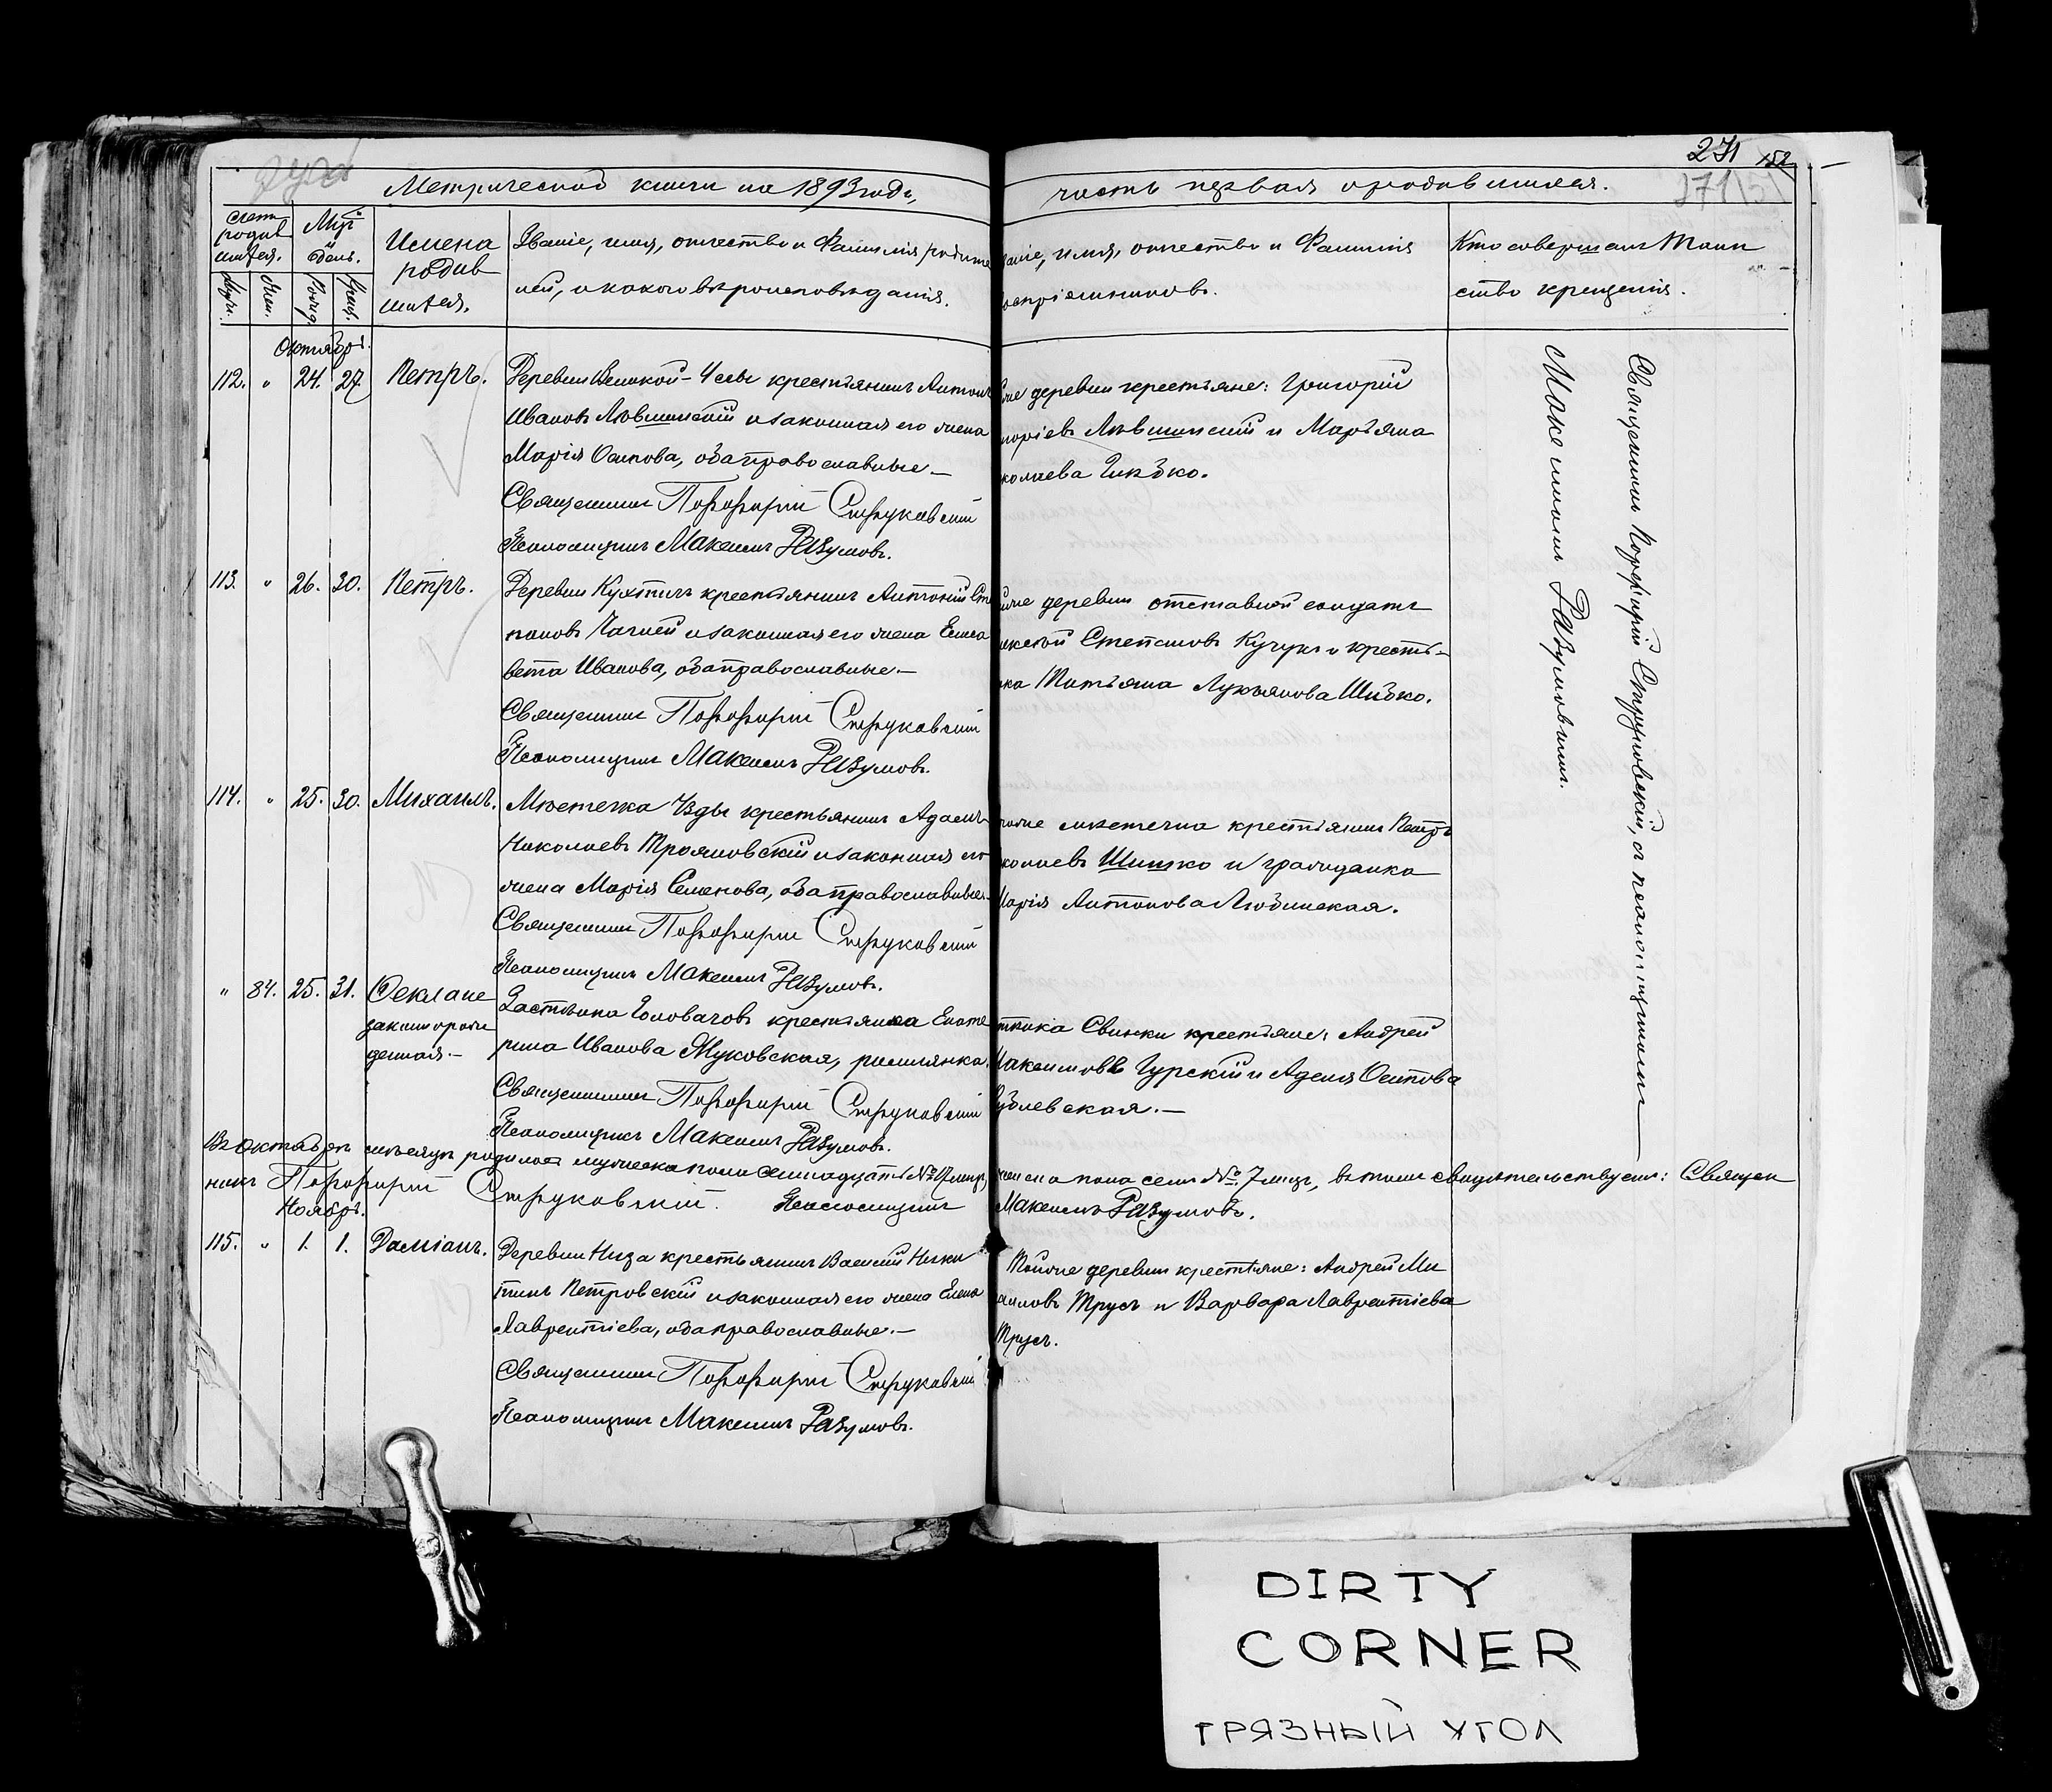 271 152
Метрической книги на 1893 годъ,
часть первая о родившихся.
Счетъ родив шихся.
Муж.
Жен.
Мѣс. и день.
Рожд.
Крещ.
Имена родив шихся.
Званіе, имя, отчество и фамилія родите
лей, и какого вѣроисповѣданія.
аніе, имя, отчество и фамилія
оспріемниковъ.
Кто совершалъ таин
ство крещенія.
Октябрь.
112. " 24. 27. Петръ.
Деревни Великой-Усы крестьянинъ Антонъ
Ивановъ Лявшинскій и законная его жена
Марія Осипова, оба православные.—
Священникъ Порфирій Струковскій
Псаломщикъ Максимъ Разумовъ.
деревни крестьяне: Григорій
горіевъ Лявшинскій и Марьяна
колаева
113. " 26. 30. Петръ.
Деревни Кухтичъ крестьянинъ Антоній Сте
пановъ и законная его жена Елиса
вета Иванова, оба православные.—
Священникъ Порфирій Струковскій
Псаломщикъ Максимъ Разумовъ.
деревни отставной солдатъ
лексѣй Степановъ Кучукъ и кресть-
нка Татьяна Лукьянова Шибко.
114. " 25. 30. Михаилъ.
Мѣстечка Узды крестьянинъ Адамъ
Николаевъ Трояновскій и законная его
жена Марія Семенова, оба православные.
Священникъ Порфирій Струковскій
Псаломщикъ Максимъ Разумовъ.
мѣстечка крестьянинъ Петръ
колаевъ Шишко и гражданка
Марія Антонова Любинская.
" 84. 25. 31. Ѳекла не
законорож
денная.—
Застѣнка Головачовъ крестьянка Екате
рина Иванова Жуковская, римлянка.
Священникъ Порфирій Струковскій
Псаломщикъ Максимъ Разумовъ.
стѣнка Свинки крестьяне: Андрей
Максимовъ Гурскій и Аделя Осипова
блевская.—
Въ октябрѣ мѣсяцѣ родилось мужеска пола семнадцать № 17 лицъ,
женска пола семь № 7 лицъ, въ томъ свидѣтельствуемъ: Священ
никъ Порфирій Струковскій. Псаломщикъ
Максимъ Разумовъ.
Ноябрь.
115. " 1. 1. Даміанъ.
Деревни Низа крестьянинъ Василій Ники
тинъ Петровскій и законная его жена Елена
Лаврентіева, оба православные.—
Священникъ Порфирій Струковскій
Псаломщикъ Максимъ Разумовъ.
Той же деревни крестьяне: Андрей Ми
аиловъ Трусъ и Варвара Лаврентіева
Трусъ.
Священникъ Порфирій Струковскій, съ псаломщикомъ
Максимомъ Разумовымъ.
DIRTY
CORNER
ГРЯЗНЫЙ УГОЛ